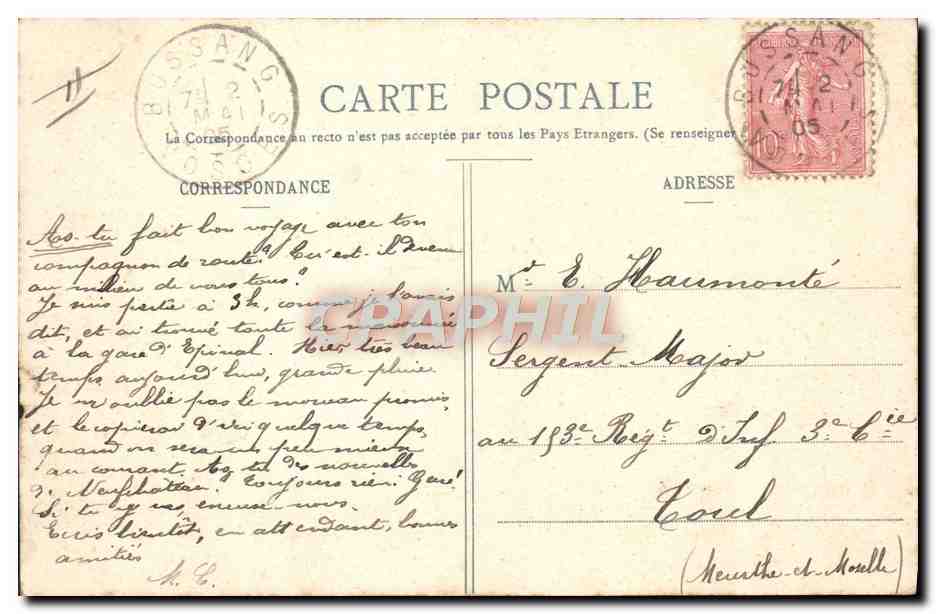 BUSSANG
7H 2
MAI
05
VOSGES
BUSSANG
7H 2
MAI
05
10
CARTE POSTALE
La Correspondance au recto n'est pas acceptée par tous les Pays Etrangers. (Se renseigner
CORRESPONDANCE
ADRESSE
As-tu fait bon voyage avec ton
compagnon de route? Qu'est-il devenu
au milieu de vous tous?
Je suis partie à 3h, comme je l'avais
dit, et ai trouvé toute la maisonnée
à la gare d'Epinal. Hier, très beau
temps, aujourd'hui, grande pluie
Je n'oublie pas le morceau promis,
et le copierai d'ici quelque temps,
quand on sera un peu mieux
au courant. As-tu des nouvelles
de Neufchâteau. Toujours rien. Gare!
Si tu y vas, excuse-nous.
Ecris bientôt, en attendant, bonnes
amitiés
M. C.
Mr E. Haumonté
Sergent-Major
au 153e Régt d'Inf. 3e Cie
Toul
(Meurthe-et-Moselle)
CPAPHIL